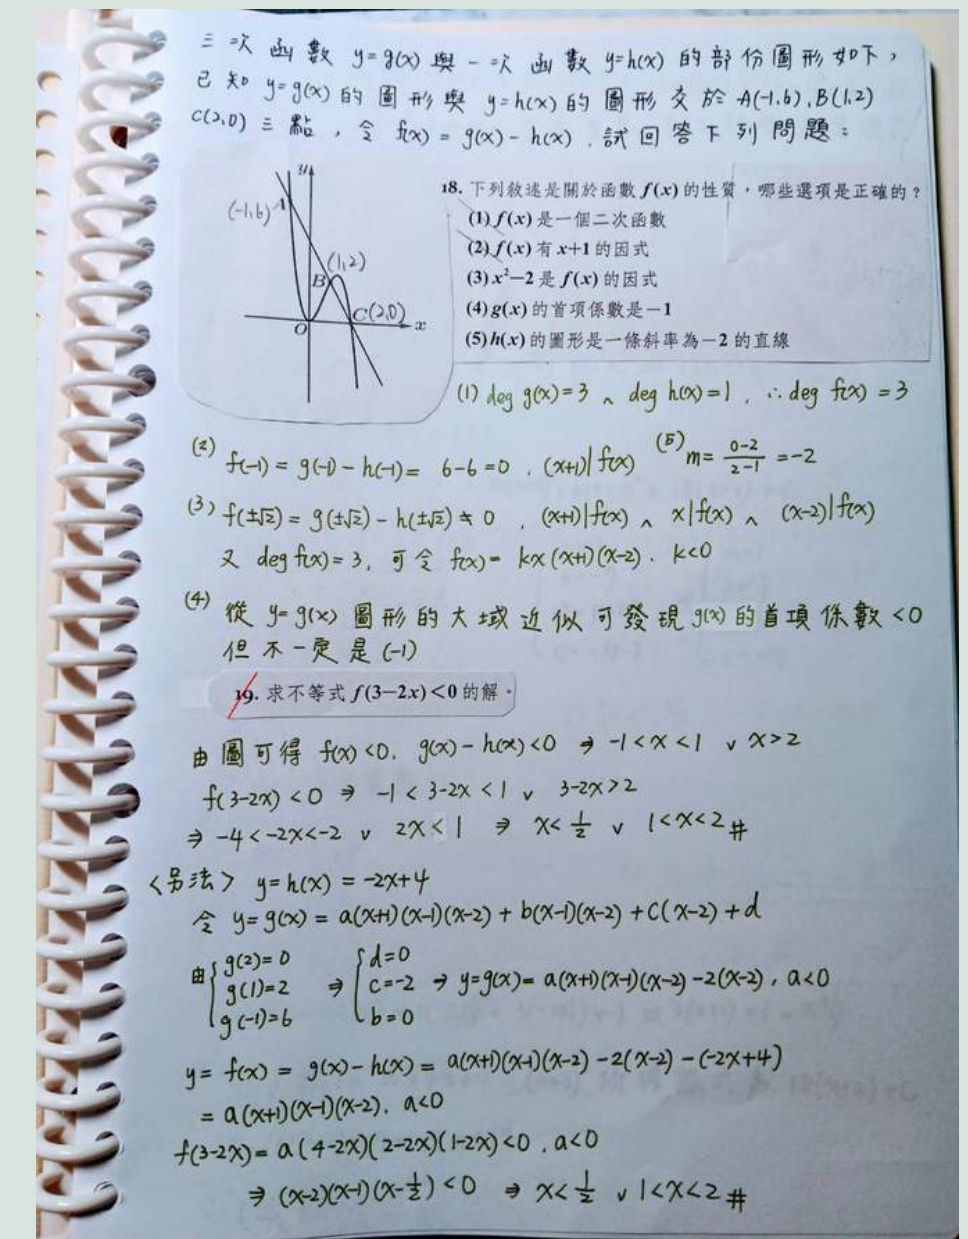 三次函數 y=g(x) 與一次函數 y=h(x) 的部份圖形如下，
已知 y=g(x) 的圖形與 y=h(x) 的圖形交於 A(-1,6), B(1,2)
C(2,0) 三點，令 f(x) = g(x) - h(x)，試回答下列問題：
y
(-1,6) A
(1,2)
B
C(2,0) x
O
18. 下列敘述是關於函數 f(x) 的性質，哪些選項是正確的？
(1) f(x) 是一個二次函數
(2) f(x) 有 x+1 的因式
(3) x²−2 是 f(x) 的因式
(4) g(x) 的首項係數是 −1
(5) h(x) 的圖形是一條斜率為 −2 的直線
(1) deg g(x)=3 ∧ deg h(x)=1, ∴ deg f(x) = 3
(2) f(-1) = g(-1) - h(-1) = 6-6=0, (x+1)| f(x)
(5) m= (0-2)/(2-1) = -2
(3) f(±√2) = g(±√2) - h(±√2) ≠ 0, (x+1)|f(x) ∧ x|f(x) ∧ (x-2)|f(x)
又 deg f(x)=3, 可令 f(x)= kx(x+1)(x-2). k<0
(4) 從 y=g(x) 圖形的大域近似可發現 g(x) 的首項係數 <0
但不一定是 (-1)
19. 求不等式 f(3−2x)<0 的解。
由圖可得 f(x)<0, g(x)-h(x)<0 ⇒ -1<x<1 ∨ x>2
f(3-2x) <0 ⇒ -1 < 3-2x < 1 ∨ 3-2x>2
⇒ -4<-2x<-2 ∨ 2x<1 ⇒ x<1/2 ∨ 1<x<2 #
<另法> y=h(x) = -2x+4
令 y=g(x) = a(x+1)(x-1)(x-2) + b(x-1)(x-2) + c(x-2) + d
由 { g(2)=0 ⇒ { d=0
g(1)=2 c=-2 ⇒ y=g(x)= a(x+1)(x-1)(x-2) -2(x-2), a<0
g(-1)=6 b=0
y= f(x) = g(x)-h(x) = a(x+1)(x-1)(x-2) -2(x-2) -(-2x+4)
= a(x+1)(x-1)(x-2). a<0
f(3-2x)= a(4-2x)(2-2x)(1-2x)<0, a<0
⇒ (x-2)(x-1)(x-1/2) <0 ⇒ x<1/2 ∨ 1<x<2 #